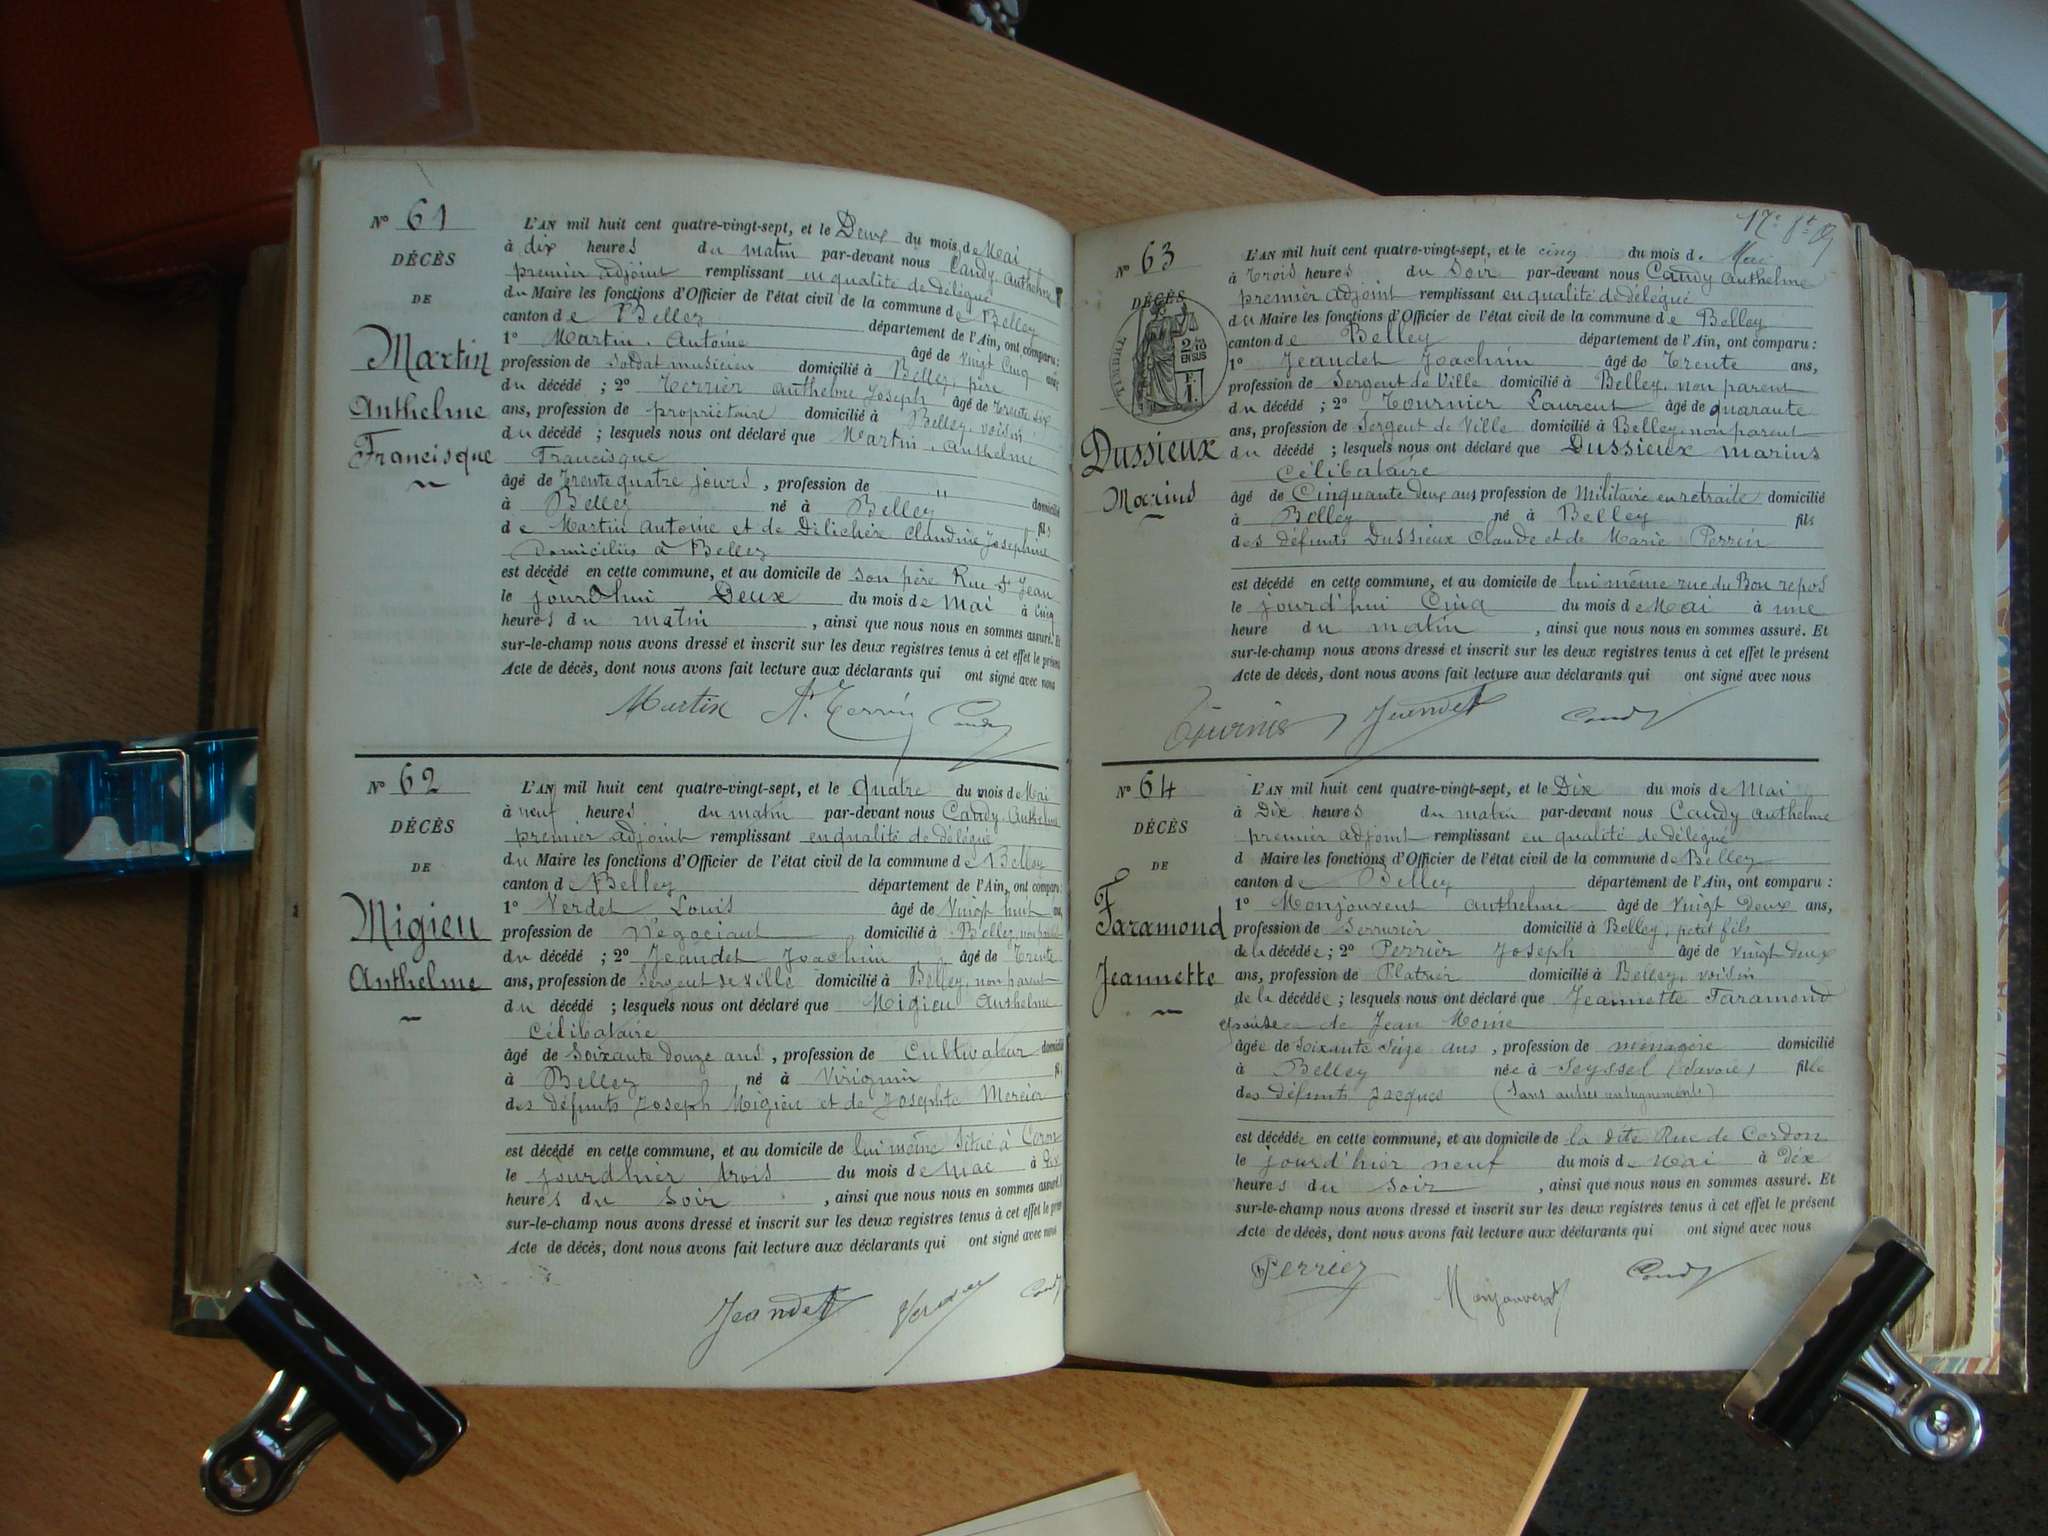 Nº 61
DÉCÈS
DE
Martin
Anthelme
Francisque
L'AN mil huit cent quatre-vingt-sept, et le Deux du mois de Mai
à dix heures du matin par-devant nous Candy Anthelme
premier adjoint remplissant en qualité de Délégué
du Maire les fonctions d'Officier de l'état civil de la commune de Belley
canton de Belley département de l'Ain, ont comparu :
1º Martin Antoine âgé de vingt Cinq ans
profession de Soldat musicien domicilié à Belley, père
du décédé ; 2º Terrier Anthelme Joseph âgé de Trente six
ans, profession de propriétaire domicilié à Belley, voisin
du décédé ; lesquels nous ont déclaré que Martin, Anthelme
Francisque
âgé de Trente quatre jours, profession de "
à Belley né à Belley domicilié
de Martin Antoine et de Délichère Claudine Josephine fils
Domiciliés à Belley
est décédé en cette commune, et au domicile de son père Rue St Jean
le jourd'hui Deux du mois de Mai à Cinq
heures du matin, ainsi que nous nous en sommes assuré. Et
sur-le-champ nous avons dressé et inscrit sur les deux registres tenus à cet effet le présent
Acte de décès, dont nous avons fait lecture aux déclarants qui ont signé avec nous
Martin Candy
Nº 62
DÉCÈS
DE
Migieu
Anthelme
L'AN mil huit cent quatre-vingt-sept, et le quatre du mois de Mai
à neuf heures du matin par-devant nous Candy Anthelme
premier adjoint remplissant en qualité de Délégué
du Maire les fonctions d'Officier de l'état civil de la commune de Belley
canton de Belley département de l'Ain, ont comparu :
1º Verdet Louis âgé de Vingt huit ans
profession de Négociant domicilié à Belley, non parent
du décédé ; 2º Jeandet Joachim âgé de Trente
ans, profession de Sergent de Ville domicilié à Belley, non parent
du décédé ; lesquels nous ont déclaré que Migieu Anthelme
Célibataire
âgé de Soixante Douze ans, profession de Cultivateur domicilié
à Belley né à Virignin fils
des défunts Joseph Migieu et de Josephte Mercier
est décédé en cette commune, et au domicile de lui même Situé à Coron
le jourd'hier trois du mois de Mai à Dix
heures du Soir, ainsi que nous nous en sommes assuré.
sur-le-champ nous avons dressé et inscrit sur les deux registres tenus à cet effet le présent
Acte de décès, dont nous avons fait lecture aux déclarants qui ont signé avec nous
Jeandet Candy
Nº 63
DÉCÈS
TIMBRE
2/10
EN SUS
Dussieux
Marius
L'AN mil huit cent quatre-vingt-sept, et le cinq du mois de Mai
à Trois heures du Soir par-devant nous Candy Anthelme
premier adjoint remplissant en qualité de délégué
du Maire les fonctions d'Officier de l'état civil de la commune de Belley
canton de Belley département de l'Ain, ont comparu :
1º Jeandet Joachim âgé de Trente ans,
profession de Sergent de Ville domicilié à Belley, non parent
du décédé ; 2º Tournier Laurent âgé de quarante
ans, profession de Sergent de Ville domicilié à Belley, non parent
du décédé ; lesquels nous ont déclaré que Dussieux Marius
Célibataire
âgé de Cinquante deux ans profession de Militaire en retraite domicilié
à Belley né à Belley fils
des défunts Dussieux Claude et de Marie Perrin
est décédé en cette commune, et au domicile de lui même rue du Bon repos
le jourd'hui Cinq du mois de Mai à une
heure du matin, ainsi que nous nous en sommes assuré. Et
sur-le-champ nous avons dressé et inscrit sur les deux registres tenus à cet effet le présent
Acte de décès, dont nous avons fait lecture aux déclarants qui ont signé avec nous
Tournier Jeandet Candy
Nº 64
DÉCÈS
DE
Faramond
Jeannette
L'AN mil huit cent quatre-vingt-sept, et le Dix du mois de Mai
à Dix heures du matin par-devant nous Candy Anthelme
premier adjoint remplissant en qualité de Délégué
d Maire les fonctions d'Officier de l'état civil de la commune de Belley
canton de Belley département de l'Ain, ont comparu :
1º Monjouvent Anthelme âgé de vingt Deux ans,
profession de Serrurier domicilié à Belley, petit fils
de la décédée ; 2º Perrier Joseph âgé de vingt deux
ans, profession de Platrier domicilié à Belley, voisin
de la décédée ; lesquels nous ont déclaré que Jeannette Faramond
épouse de Jean Moine
âgée de Soixante Seize ans, profession de ménagère domicilié
à Belley née à Seyssel (Savoie) fille
des défunts Jacques (Sans autres renseignements)
est décédée en cette commune, et au domicile de la dite Rue de Cordon
le jourd'hier neuf du mois de Mai à Dix
heures du Soir, ainsi que nous nous en sommes assuré. Et
sur-le-champ nous avons dressé et inscrit sur les deux registres tenus à cet effet le présent
Acte de décès, dont nous avons fait lecture aux déclarants qui ont signé avec nous
Perrier Monjouvent Candy